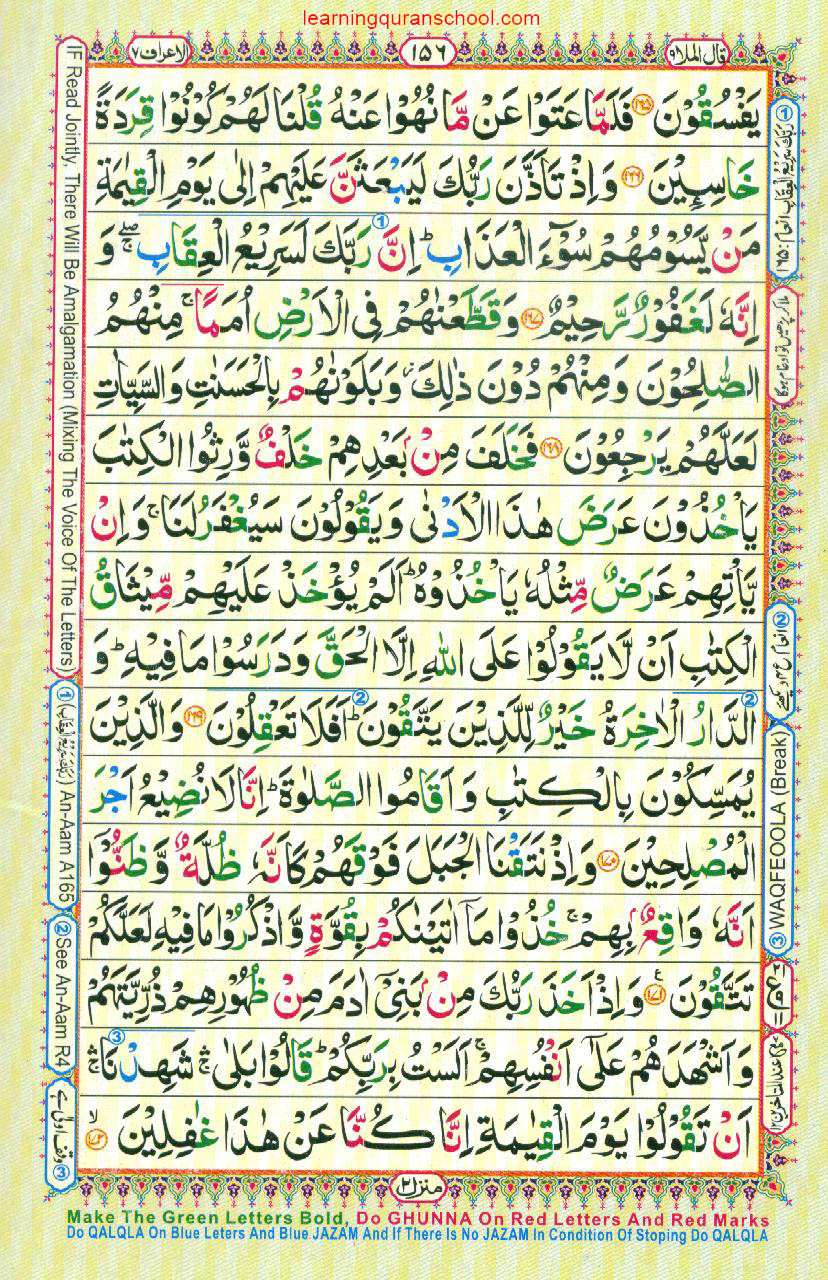 learningquranschool.com
قال الملا ۹
۱۵۶
الاعراف ۷
يَفْسُقُوْنَ ۝۱۶۵ فَلَمَّا عَتَوْا عَنْ مَّا نُهُوْا عَنْهُ قُلْنَا لَهُمْ كُوْنُوْا قِرَدَةً
خَاسِـِٕيْنَ ۝۱۶۶ وَاِذْ تَاَذَّنَ رَبُّكَ لَيَبْعَثَنَّ عَلَيْهِمْ اِلٰى يَوْمِ الْقِيٰمَةِ
مَنْ يَّسُوْمُهُمْ سُوْٓءَ الْعَذَابِ ؕ اِنَّ رَبَّكَ لَسَرِيْعُ الْعِقَابِ ۖۚ وَ
اِنَّهٗ لَغَفُوْرٌ رَّحِيْمٌ ۝۱۶۷ وَقَطَّعْنٰهُمْ فِى الْاَرْضِ اُمَمًا ۚ مِنْهُمُ
الصّٰلِحُوْنَ وَمِنْهُمْ دُوْنَ ذٰلِكَ ؗ وَبَلَوْنٰهُمْ بِالْحَسَنٰتِ وَالسَّيِّاٰتِ
لَعَلَّهُمْ يَرْجِعُوْنَ ۝۱۶۸ فَخَلَفَ مِنْۢ بَعْدِهِمْ خَلْفٌ وَّرِثُوا الْكِتٰبَ
يَاْخُذُوْنَ عَرَضَ هٰذَا الْاَدْنٰى وَيَقُوْلُوْنَ سَيُغْفَرُ لَنَا ۚ وَاِنْ
يَّاْتِهِمْ عَرَضٌ مِّثْلُهٗ يَاْخُذُوْهُ ؕ اَلَمْ يُؤْخَذْ عَلَيْهِمْ مِّيْثَاقُ
الْكِتٰبِ اَنْ لَّا يَقُوْلُوْا عَلَى اللّٰهِ اِلَّا الْحَقَّ وَدَرَسُوْا مَا فِيْهِ ؕ وَ
الدَّارُ الْاٰخِرَةُ خَيْرٌ لِّلَّذِيْنَ يَتَّقُوْنَ ؕ اَفَلَا تَعْقِلُوْنَ ۝۱۶۹ وَالَّذِيْنَ
يُمَسِّكُوْنَ بِالْكِتٰبِ وَاَقَامُوا الصَّلٰوةَ ؕ اِنَّا لَا نُضِيْعُ اَجْرَ
الْمُصْلِحِيْنَ ۝۱۷۰ وَاِذْ نَتَقْنَا الْجَبَلَ فَوْقَهُمْ كَاَنَّهٗ ظُلَّةٌ وَّظَنُّوْۤا
اَنَّهٗ وَاقِعٌۢ بِهِمْ ۚ خُذُوْا مَاۤ اٰتَيْنٰكُمْ بِقُوَّةٍ وَّاذْكُرُوْا مَا فِيْهِ لَعَلَّكُمْ
تَتَّقُوْنَ ۝۱۷۱ وَاِذْ اَخَذَ رَبُّكَ مِنْۢ بَنِىْۤ اٰدَمَ مِنْ ظُهُوْرِهِمْ ذُرِّيَّتَهُمْ
وَاَشْهَدَهُمْ عَلٰۤى اَنْفُسِهِمْ ۚ اَلَسْتُ بِرَبِّكُمْ ؕ قَالُوْا بَلٰى ۛۚ شَهِدْنَا ۛۚ
اَنْ تَقُوْلُوْا يَوْمَ الْقِيٰمَةِ اِنَّا كُنَّا عَنْ هٰذَا غٰفِلِيْنَ ۝۱۷۲
IF Read Jointly, There Will Be Amalgamation (Mixing The Voice Of The Letters)
① An-Aam A165
② See An-Aam R4
③ وقف اولیٰ ہے
① رَبَّكَ سَرِيْعُ الْعِقَابِ انعام : ۱۶۵
ملا کر پڑھیں تو ادغام ہوگا
③ WAQFEOOLA (Break)
منزل ۲
Make The Green Letters Bold, Do GHUNNA On Red Letters And Red Marks
Do QALQLA On Blue Leters And Blue JAZAM And If There Is No JAZAM In Condition Of Stoping Do QALQLA